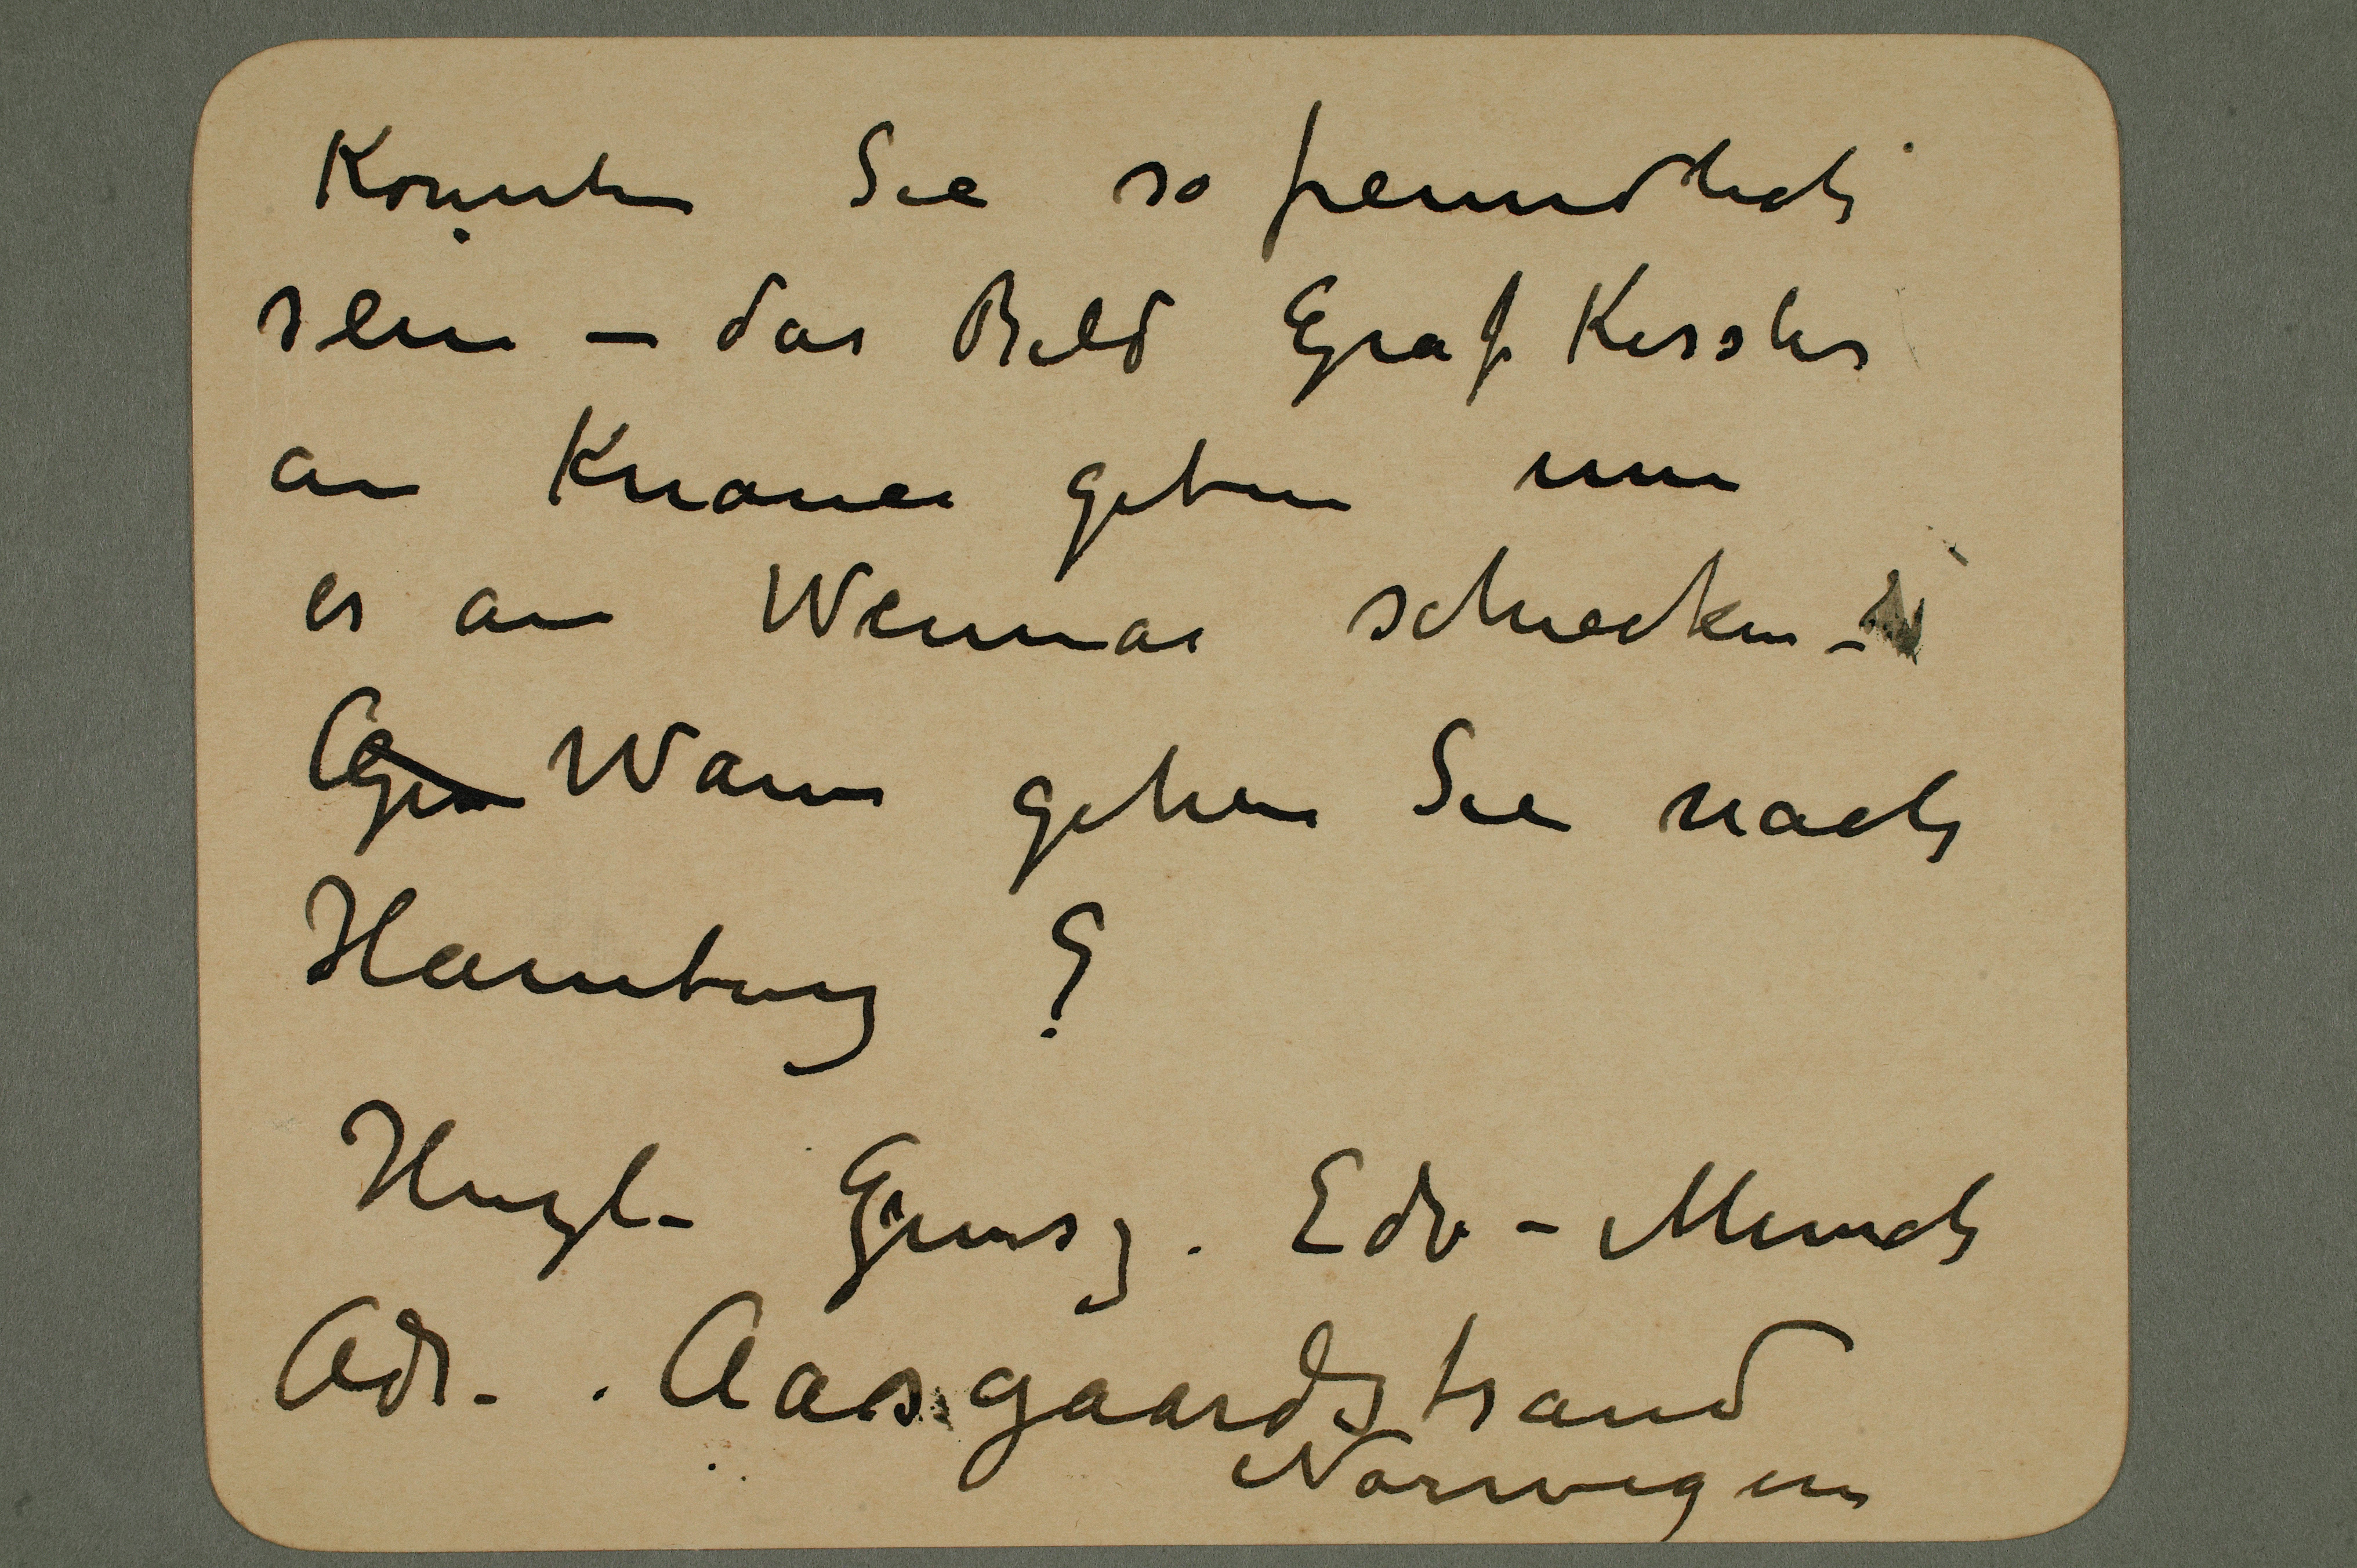 Konnten Sie so freundlich
sein – das Bild Graf Kesslers
an Knauer geben um
es an Weimar schicken –
Wann gehen Sie nach
Hamburg ?
Herzl. Grusz. Edv – Munch
Adr. . Aasgaardstrand
Norwegen